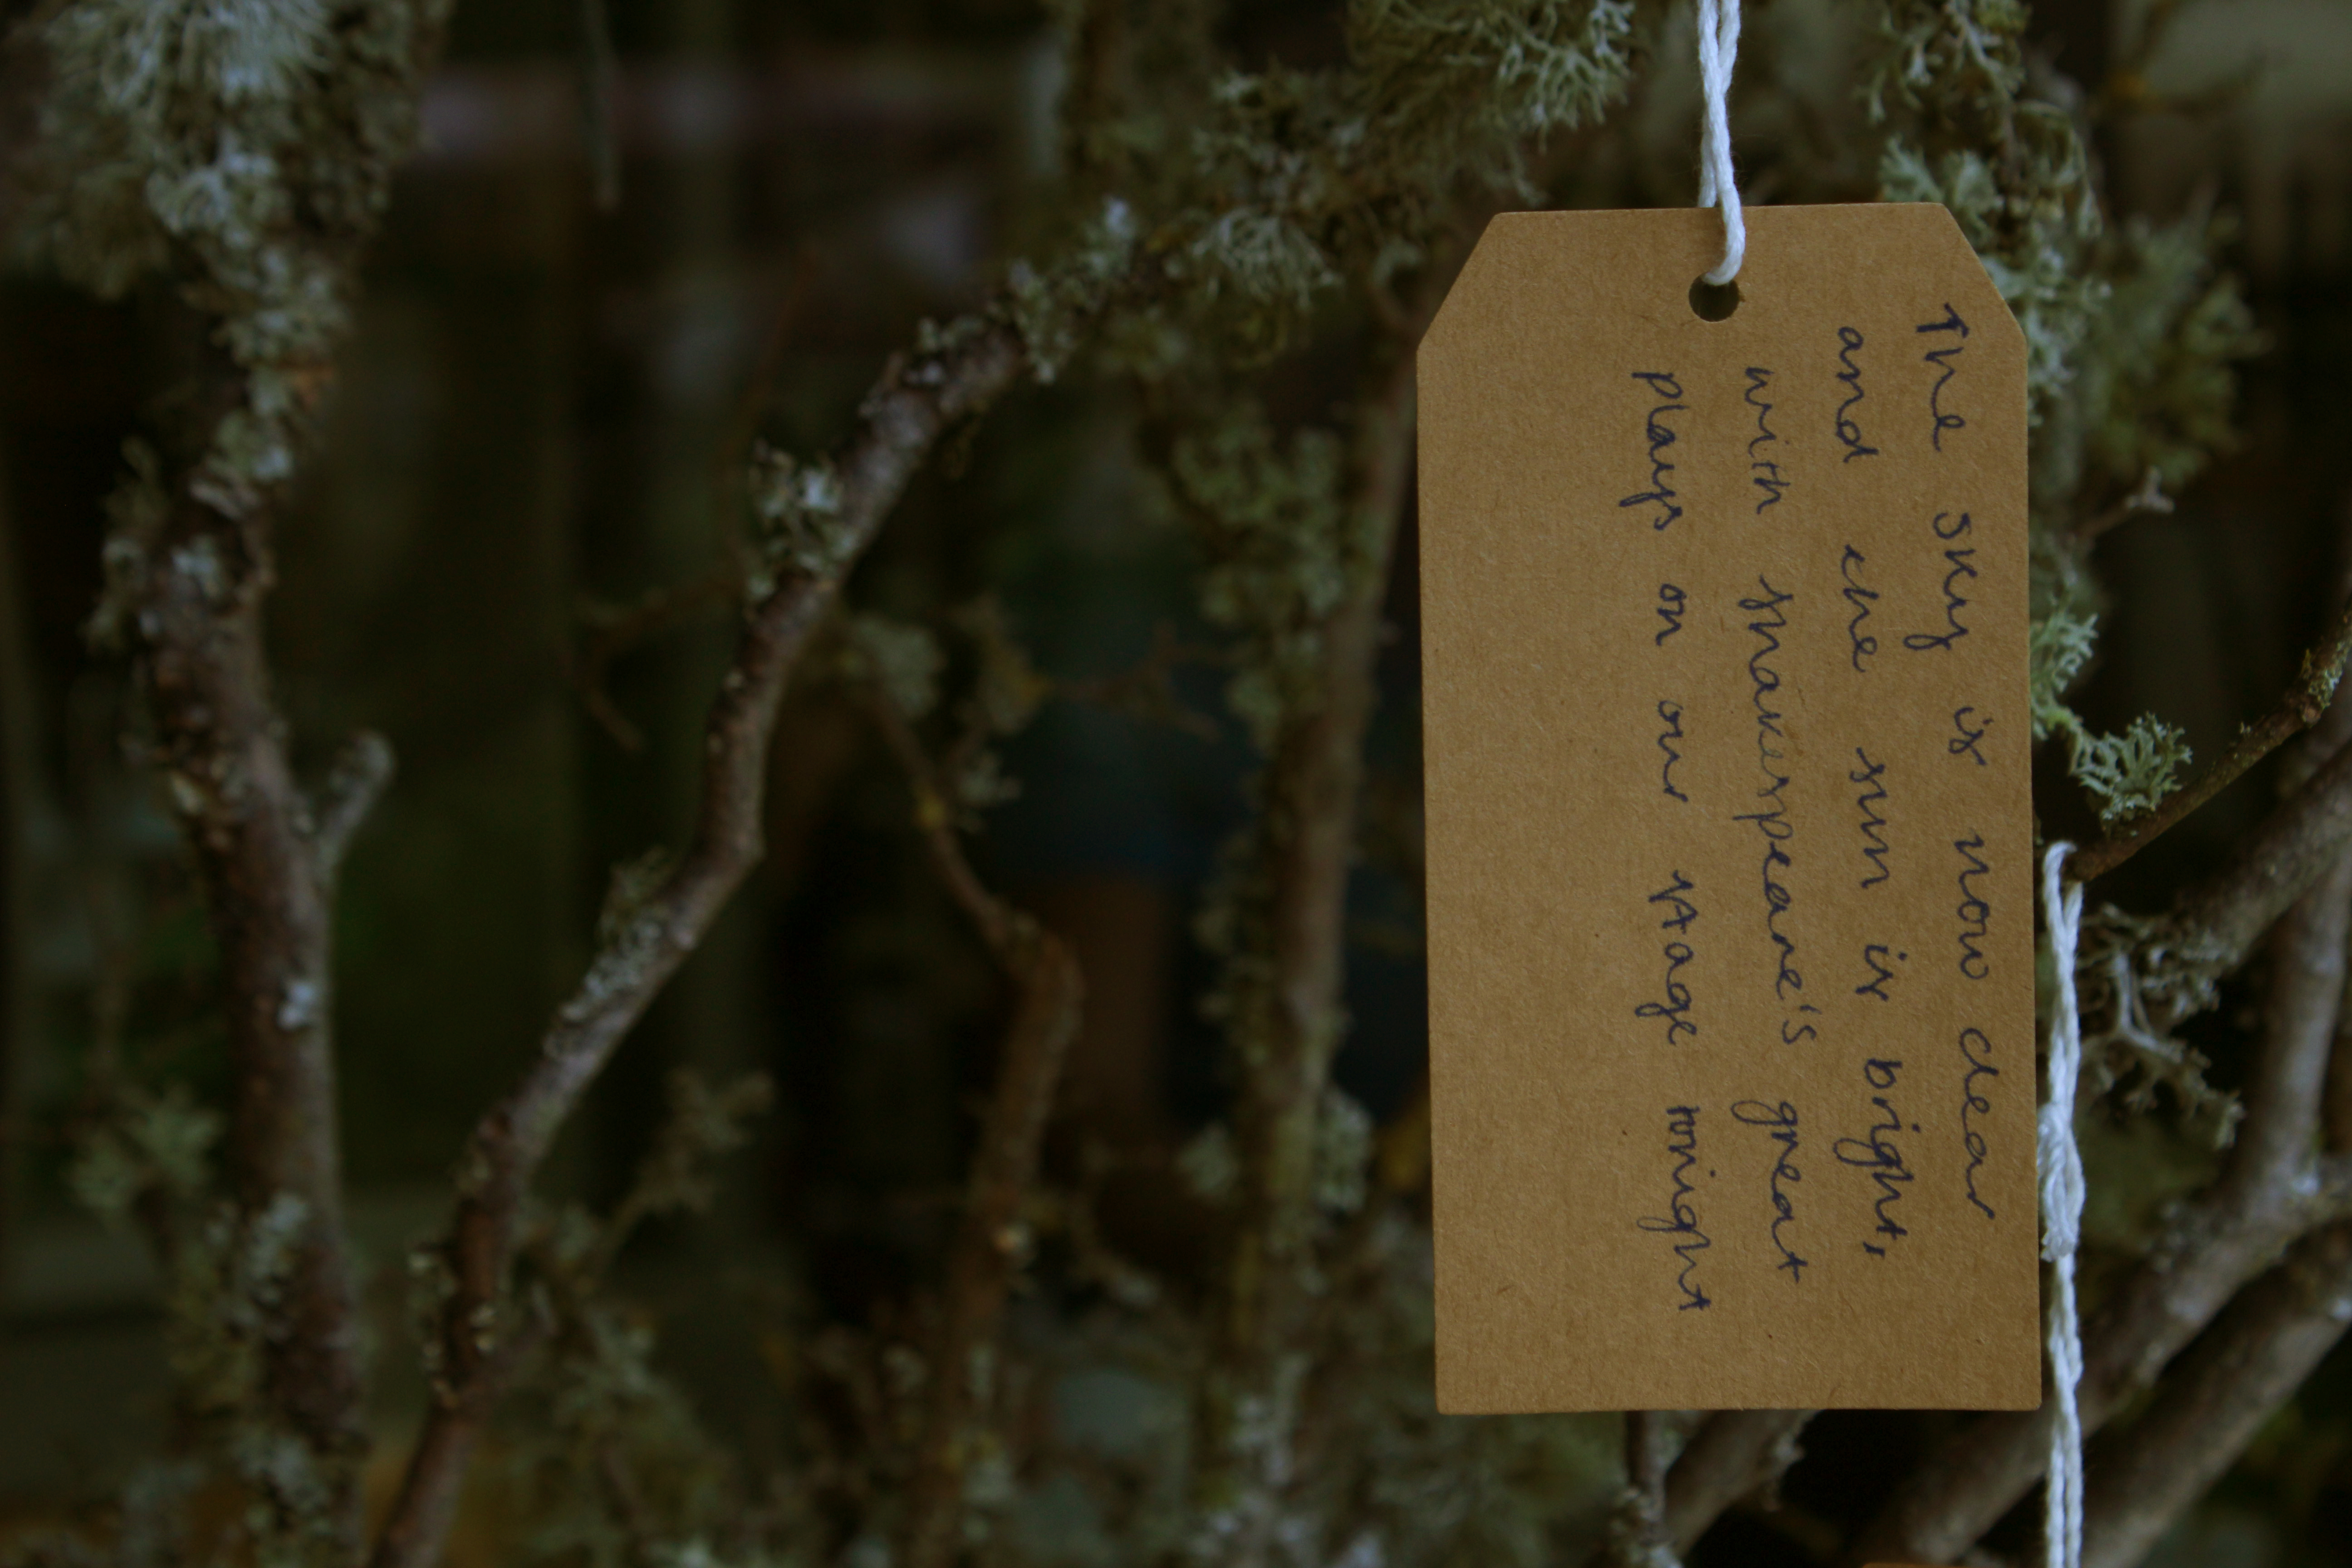 The sky is now clear
and the sun is bright,
with shakespeare's great
plays on our stage tonight